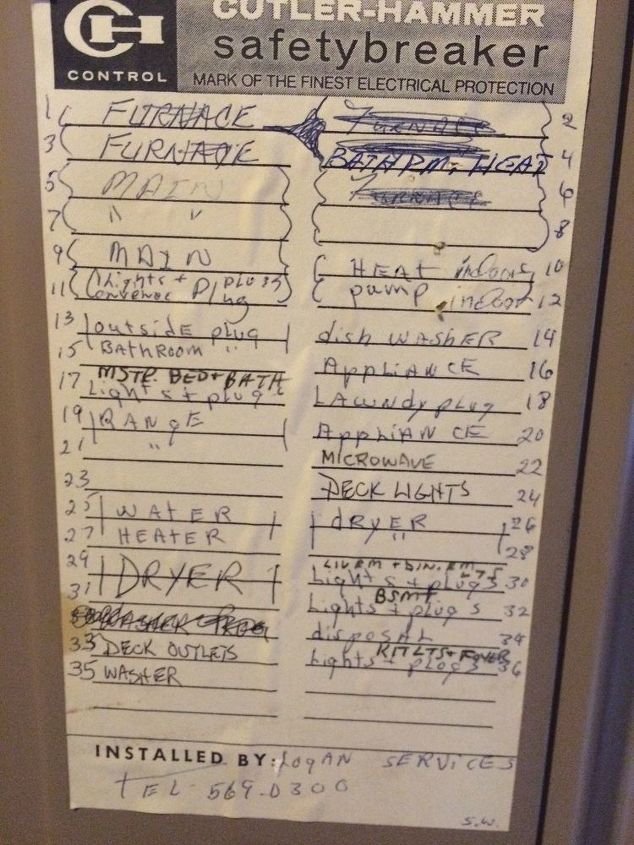 CH
CUTLER-HAMMER
safetybreaker
CONTROL
MARK OF THE FINEST ELECTRICAL PROTECTION
1 FURNACE 2
3 FURNACE BATH RM. HEAT 4
5 MAIN 6
7 " " 8
9 MAIN HEAT indoor 10
11 Lights + plugs pump indoor 12
Plug
13 outside plug dish WASHER 14
15 BATHROOM " APPLIANCE 16
MSTR. BED + BATH
17 Lights + plugs LAUNDY plug 18
19 RANgE APPLIANCE 20
21 " MICROWAVE 22
23 DECK LIGHTS 24
25 WATER dRYER 26
27 HEATER " 28
LIV RM + DIN. RM LTS
29 DRYER Lights + plugs 30
BSMT
31 Lights + plugs 32
disposal 34
KIT LTS + FOYER
33 DECK OUTLETS Lights + plugs 36
35 WASHER
INSTALLED BY: LOgAN SERVICES
TEL 569-0300
S.W.